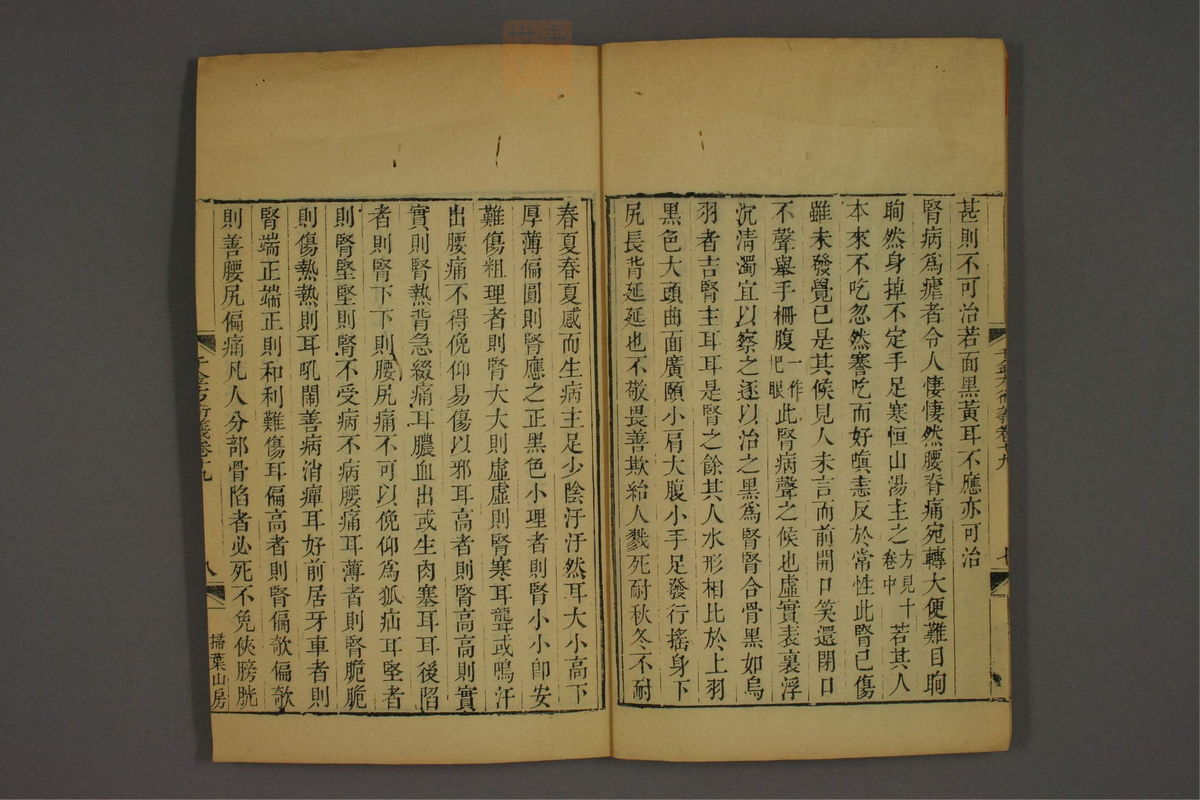 甚則不可治若面黑黃耳不應亦可治
腎病爲瘧者令人悽悽然腰脊痛宛轉大便難目眴
眴然身掉不定手足寒恒山湯主之方見十卷中若其人
本來不吃忽然謇吃而好嗔恚反於常性此腎已傷
雖未發覺已是其候見人未言而前開口笑還閉口
不聲舉手柵腹一作把眼此腎病聲之候也虛實表裏浮
沉清濁宜以察之逐以治之黑爲腎腎合骨黑如烏
羽者吉腎主耳耳是腎之餘其人水形相比於上羽
黑色大頭曲面廣頤小肩大腹小手足發行搖身下
尻長背延延也不敬畏善欺紿人戮死耐秋冬不耐
春夏春夏感而生病主足少陰汙汙然耳大小高下
厚薄偏圓則腎應之正黑色小理者則腎小小卽安
難傷粗理者則腎大大則虛虛則腎寒耳聾或鳴汗
出腰痛不得俛仰易傷以邪耳高者則腎高高則實
實則腎熱背急綴痛耳膿血出或生肉塞耳耳後陷
者則腎下下則腰尻痛不可以俛仰爲狐疝耳堅者
則腎堅堅則腎不受病不病腰痛耳薄者則腎脆脆
則傷熱熱則耳吼鬧善病消癉耳好前居牙車者則
腎端正端正則和利難傷耳偏高者則腎偏欹偏欹
則善腰尻偏痛凡人分部骨陷者必死不免俠膀胱
千金方衍義卷十九
八
掃葉山房